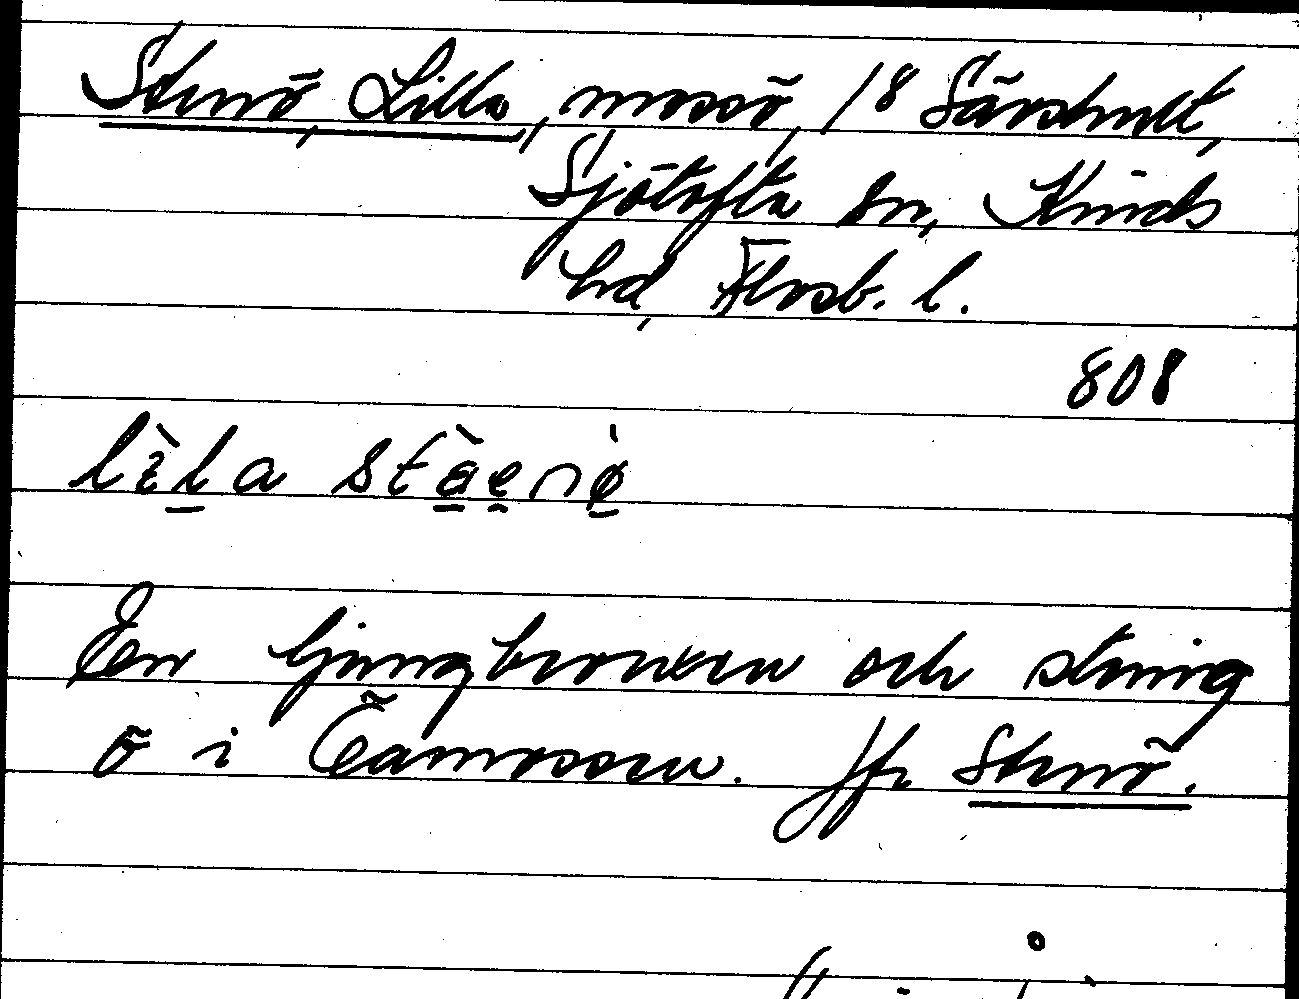 Stenö, Lilla, mossö, 1/8 Särshult,
Sjötofta sn, Kinds
hd, Älvsb. l.
808
lìla stàenø̀
En ljungbevuxen och stenig
ö i Eamossen. Jfr Stenö.